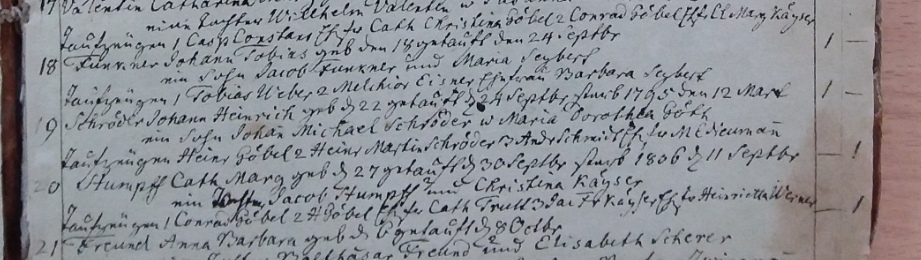 17 Valentin Catharina
eine Tochter Wilhelm Valentin u
Taufzeugen 1 Casp Constant Cath Christina Göbel 2 Conrad Göbel Marg Kayser
18 Funkner Johann Tobias geb den 18 getauft den 24 Septbr 1 —
ein Sohn Jacob Funkner und Maria Seybert
Taufzeugen 1 Tobias Weber 2 Melchior Eisner Ehefrau Barbara Seybert
19 Schröder Johann Heinrich geb d 22 getauft d 24 Septbr starb 1795 den 12 Mart 1 —
ein Sohn Johan Michael Schröder u Maria Dorothea Göth
Taufzeugen Heinr Göbel 2 Heinr Martin Schröder 3 Andr Schmidt
20 Stumpff Cath Marg geb d 27 getauft d 30 Septbr starb 1806 d 11 Septbr — 1
ein Jacob Stumpff und Christina Kayser
Taufzeugen 1 Conrad Göbel 2 H Göbel Cath 3 Kayser Henrietta Werner — 1
21 Freund Anna Barbara geb d 6 getauft d 8 Octbr
Balthasar Freund und Elisabeth Scherer